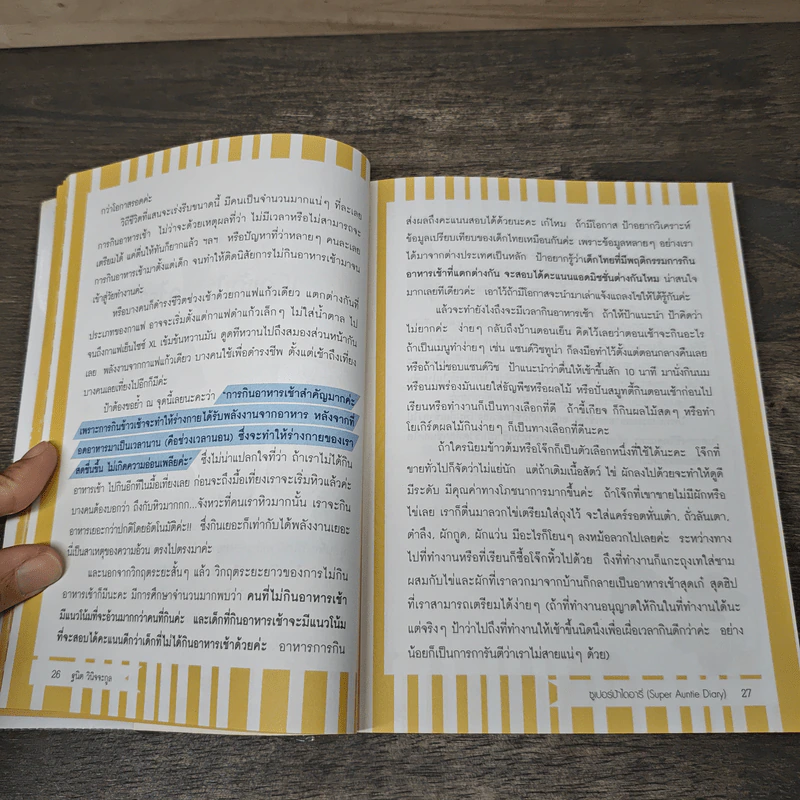 กว่าโอกาสรอดค่ะ
วิถีชีวิตที่แสนจะเร่งรีบขนาดนี้ มีคนเป็นจำนวนมากแน่ๆ ที่ละเลย
การกินอาหารเช้า ไม่ว่าจะด้วยเหตุผลที่ว่า ไม่มีเวลาหรือไม่สามารถจะ
เตรียมได้ แค่ตื่นให้ทันก็ยากแล้ว ฯลฯ หรือปัญหาที่ว่าหลายๆ คนละเลย
การกินอาหารเช้ามาตั้งแต่เด็ก จนทำให้ติดนิสัยการไม่กินอาหารเช้ามาจน
เข้าสู่วัยทำงานค่ะ
หรือบางคนก็ดำรงชีวิตช่วงเช้าด้วยกาแฟแก้วเดียว แตกต่างกันที่
ประเภทของกาแฟ อาจจะเริ่มตั้งแต่กาแฟดำแก้วเล็กๆ ไม่ใส่น้ำตาล ไป
จนถึงกาแฟเย็นไซซ์ XL เข้มข้นหวานมัน ดูดทีหวานไปถึงสมองส่วนหน้ากัน
เลย พลังงานจากกาแฟแก้วเดียว บางคนใช้เพื่อดำรงชีพ ตั้งแต่เช้าถึงเที่ยง
บางคนเลยเที่ยงไปอีกก็มีค่ะ
ป้าต้องขอย้ำ ณ จุดนี้เลยนะคะว่า "การกินอาหารเช้าสำคัญมากค่ะ
เพราะการกินข้าวเช้าจะทำให้ร่างกายได้รับพลังงานจากอาหาร หลังจากที่
อดอาหารมาเป็นเวลานาน (คือช่วงเวลานอน) ซึ่งจะทำให้ร่างกายของเรา
สดชื่นขึ้น ไม่เกิดความอ่อนเพลียค่ะ" ซึ่งไม่น่าแปลกใจที่ว่า ถ้าเราไม่ได้กิน
อาหารเช้า ไปกินอีกทีในมื้อเที่ยงเลย ก่อนจะถึงมื้อเที่ยงเราจะเริ่มหิวแล้วค่ะ
บางคนต้องบอกว่า ถึงกับหิวมากกกก...จังหวะที่คนเราหิวมากนั้น เราจะกิน
อาหารเยอะกว่าปกติโดยอัตโนมัติค่ะ!! ซึ่งกินเยอะก็เท่ากับได้พลังงานเยอะ
นี่เป็นสาเหตุของความอ้วน ตรงไปตรงมาค่ะ
และนอกจากวิกฤตระยะสั้นๆ แล้ว วิกฤตระยะยาวของการไม่กิน
อาหารเช้าก็มีนะคะ มีการศึกษาจำนวนมากพบว่า คนที่ไม่กินอาหารเช้า
มีแนวโน้มที่จะอ้วนมากกว่าคนที่กินค่ะ และเด็กที่กินอาหารเช้าจะมีแนวโน้ม
ที่จะสอบได้คะแนนดีกว่าเด็กที่ไม่ได้กินอาหารเช้าด้วยค่ะ อาหารการกิน
26 ฐนิต วินิจจะกูล
ส่งผลถึงคะแนนสอบได้ด้วยนะคะ เก๋ไหม ถ้ามีโอกาส ป้าอยากวิเคราะห์
ข้อมูลเปรียบเทียบของเด็กไทยเหมือนกันค่ะ เพราะข้อมูลหลายๆ อย่างเรา
ได้มาจากต่างประเทศเป็นหลัก ป้าอยากรู้ว่าเด็กไทยที่มีพฤติกรรมการกิน
อาหารเช้าที่แตกต่างกัน จะสอบได้คะแนนแอดมิชชั่นต่างกันไหม น่าสนใจ
มากเลยทีเดียวค่ะ เอาไว้ถ้ามีโอกาสจะนำมาเล่าแจ้งแถลงไขให้ได้รู้กันค่ะ
แล้วจะทำยังไงถึงจะมีเวลากินอาหารเช้า ถ้าให้ป้าแนะนำ ป้าคิดว่า
ไม่ยากค่ะ ง่ายๆ กลับถึงบ้านตอนเย็น คิดไว้เลยว่าตอนเช้าจะกินอะไร
ถ้าเป็นเมนูทำง่ายๆ เช่น แซนด์วิชทูน่า ก็ลงมือทำไว้ตั้งแต่ตอนกลางคืนเลย
หรือถ้าไม่ชอบแซนด์วิช ป้าแนะนำว่าตื่นให้เช้าขึ้นสัก 10 นาที มานั่งกินนม
หรือนมพร่องมันเนยใส่ธัญพืชหรือผลไม้ หรือปั่นสมูทตี้กินตอนเช้าก่อนไป
เรียนหรือทำงานก็เป็นทางเลือกที่ดี ถ้าขี้เกียจ ก็กินผลไม้สดๆ หรือทำ
โยเกิร์ตผลไม้กินง่ายๆ ก็เป็นทางเลือกที่ดีนะคะ
ถ้าใครนิยมข้าวต้มหรือโจ๊กก็เป็นตัวเลือกหนึ่งที่ใช้ได้นะคะ โจ๊กที่
ขายทั่วไปก็จัดว่าไม่แย่นัก แต่ถ้าเติมเนื้อสัตว์ ไข่ ผักลงไปด้วยจะทำให้ดูดี
มีระดับ มีคุณค่าทางโภชนาการมากขึ้นค่ะ ถ้าโจ๊กที่เขาขายไม่มีผักหรือ
ไข่เลย เราก็ตื่นมาลวกไข่เตรียมใส่ถุงไว้ จะใส่แคร์รอตหั่นเต๋า, ถั่วลันเตา,
ตำลึง, ผักกูด, ผักแว่น มีอะไรก็โยนๆ ลงหม้อลวกไปเลยค่ะ ระหว่างทาง
ไปที่ทำงานหรือที่เรียนก็ซื้อโจ๊กหิ้วไปด้วย ถึงที่ทำงานก็แกะถุงเทใส่ชาม
ผสมกับไข่และผักที่เราลวกมาจากบ้านก็กลายเป็นอาหารเช้าสุดเก๋ สุดฮิป
ที่เราสามารถเตรียมได้ง่ายๆ (ถ้าที่ทำงานอนุญาตให้กินในที่ทำงานได้นะ
แต่จริงๆ ป้าว่าไปถึงที่ทำงานให้เช้าขึ้นนิดนึงเพื่อเผื่อเวลากินดีกว่าค่ะ อย่าง
น้อยก็เป็นการการันตีว่าเราไม่สายแน่ๆ ด้วย)
ซูเปอร์ป้าไดอารี่ (Super Auntie Diary) 27